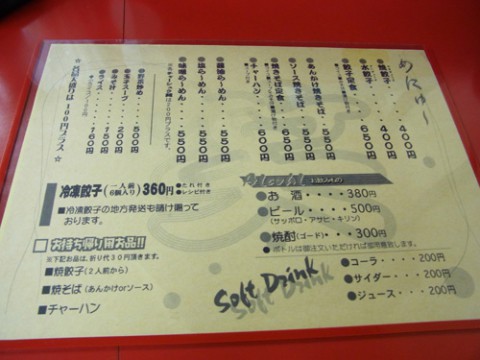 めにゅ〜
●焼餃子・・・・400円
●水餃子・・・・400円
●餃子定食・・・650円
●あんかけ焼きそば・・550円
●ソース焼きそば・・・550円
●焼きそば定食・・・・600円
●チャーハン・・・・・600円
●醤油らーめん・・・550円
●塩らーめん・・・・550円
●味噌らーめん・・・550円
●玉子スープ・・・200円
●みそ汁・・・160円
●ライス・・・150円
冷凍餃子（一人前6個入り）360円
●たれ付き
●レシピ付き
■冷凍餃子の地方発送も請け賜って
おります。
お持ち帰り用お品!!
※下記お品は、折り代30円頂きます。
■焼餃子（2人前から）
■焼そば（あんかけorソース）
■チャーハン
●お酒・・・・・380円
●ビール・・・・500円
（サッポロ・アサヒ・キリン）
●焼酎（ゴード）・・300円
Soft Drink
●コーラ・・・・200円
●サイダー・・・200円
●ジュース・・・200円